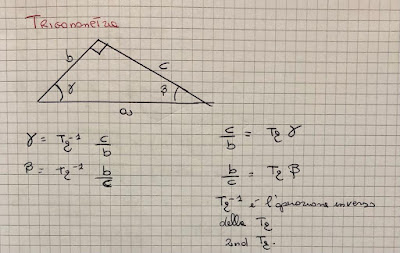 TRIGONOMETRIA
b
c
γ
β
a
γ = Tg⁻¹ c/b
β = Tg⁻¹ b/c
c/b = Tg γ
b/c = Tg β
Tg⁻¹ è l'operazione inversa
della Tg
2nd Tg.